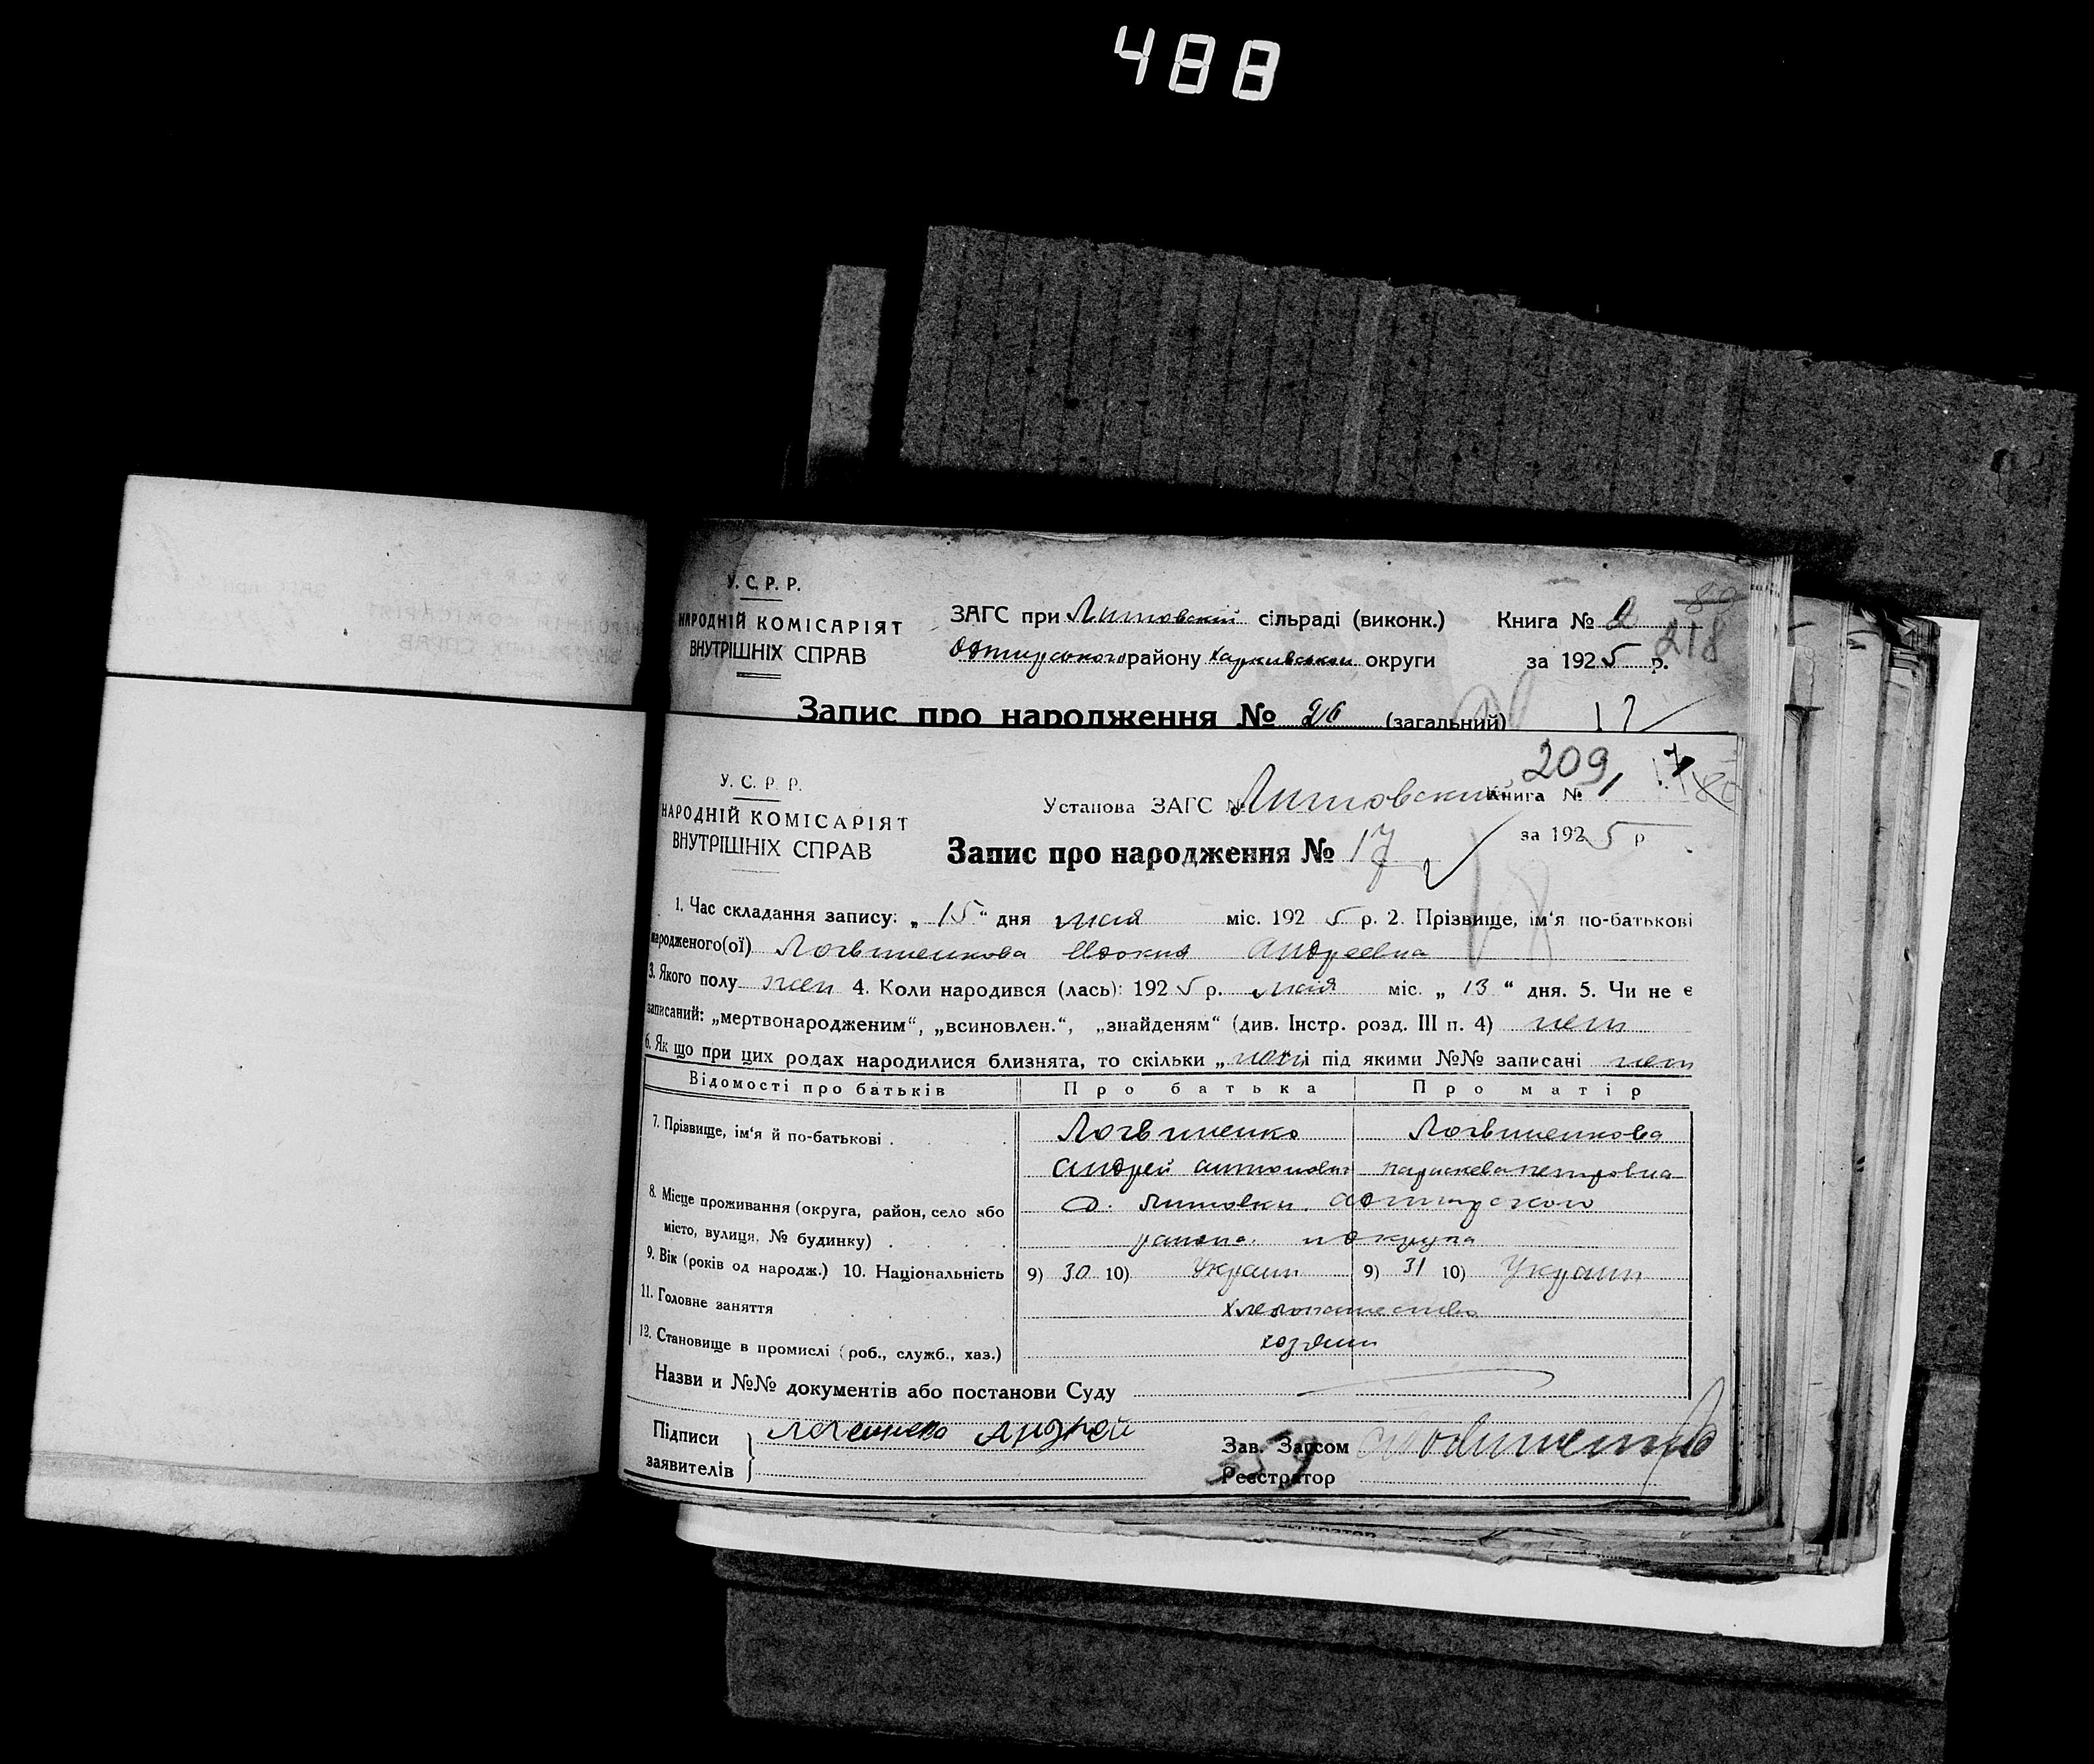 488
У. С. Р. Р.
НАРОДНІЙ КОМІСАРІЯТ
ВНУТРІШНІХ СПРАВ
ЗАГС при Литовскій сільраді (виконк.)
району Харкивськои округи
Книга № 2
за 1925 р.
80
218
Запис про народження № 26 (загальний) 17
209
У. С. Р. Р.
НАРОДНІЙ КОМІСАРІЯТ
ВНУТРІШНІХ СПРАВ
Установа ЗАГС № Литовский Книга № 1
за 1925 р
Запис про народження № 17
1. Час складання запису: „ 15 “ дня мая міс. 192 5 р. 2. Прізвище, ім‘я по-батькові
народженого(ої) Логвиненкова Андреевна
3. Якого полу жен 4. Коли народився (лась): 192 5 р. мая міс. „ 13 “ дня. 5. Чи не є
записаний: „мертвонародженим“, „всиновлен.“, „знайденям“ (див. Інстр. розд. III п. 4) нет
6. Як що при цих родах народилися близнята, то скільки „ нет і під якими №№ записані нет
Відомості про батьків Про батька Про матір
7. Прізвище, ім‘я й по-батькові . Логвиненко Логвиненкова
Андрей Антонович Параскева Петровна
8. Місце проживання (округа, район, село або
місто, вулиця, № будинку) . с. Литовки
района и округа
9. Вік (років од народж.) 10. Національність 9) 30 10) Украин 9) 31 10) Украин
11. Головне заняття хлебопашество
12. Становище в промислі (роб., служб., хаз.) хозяин
Назви и №№ документів або постанови Суду
Підписи
заявителів
Андрей
Зав. Загсом
Реєстратор